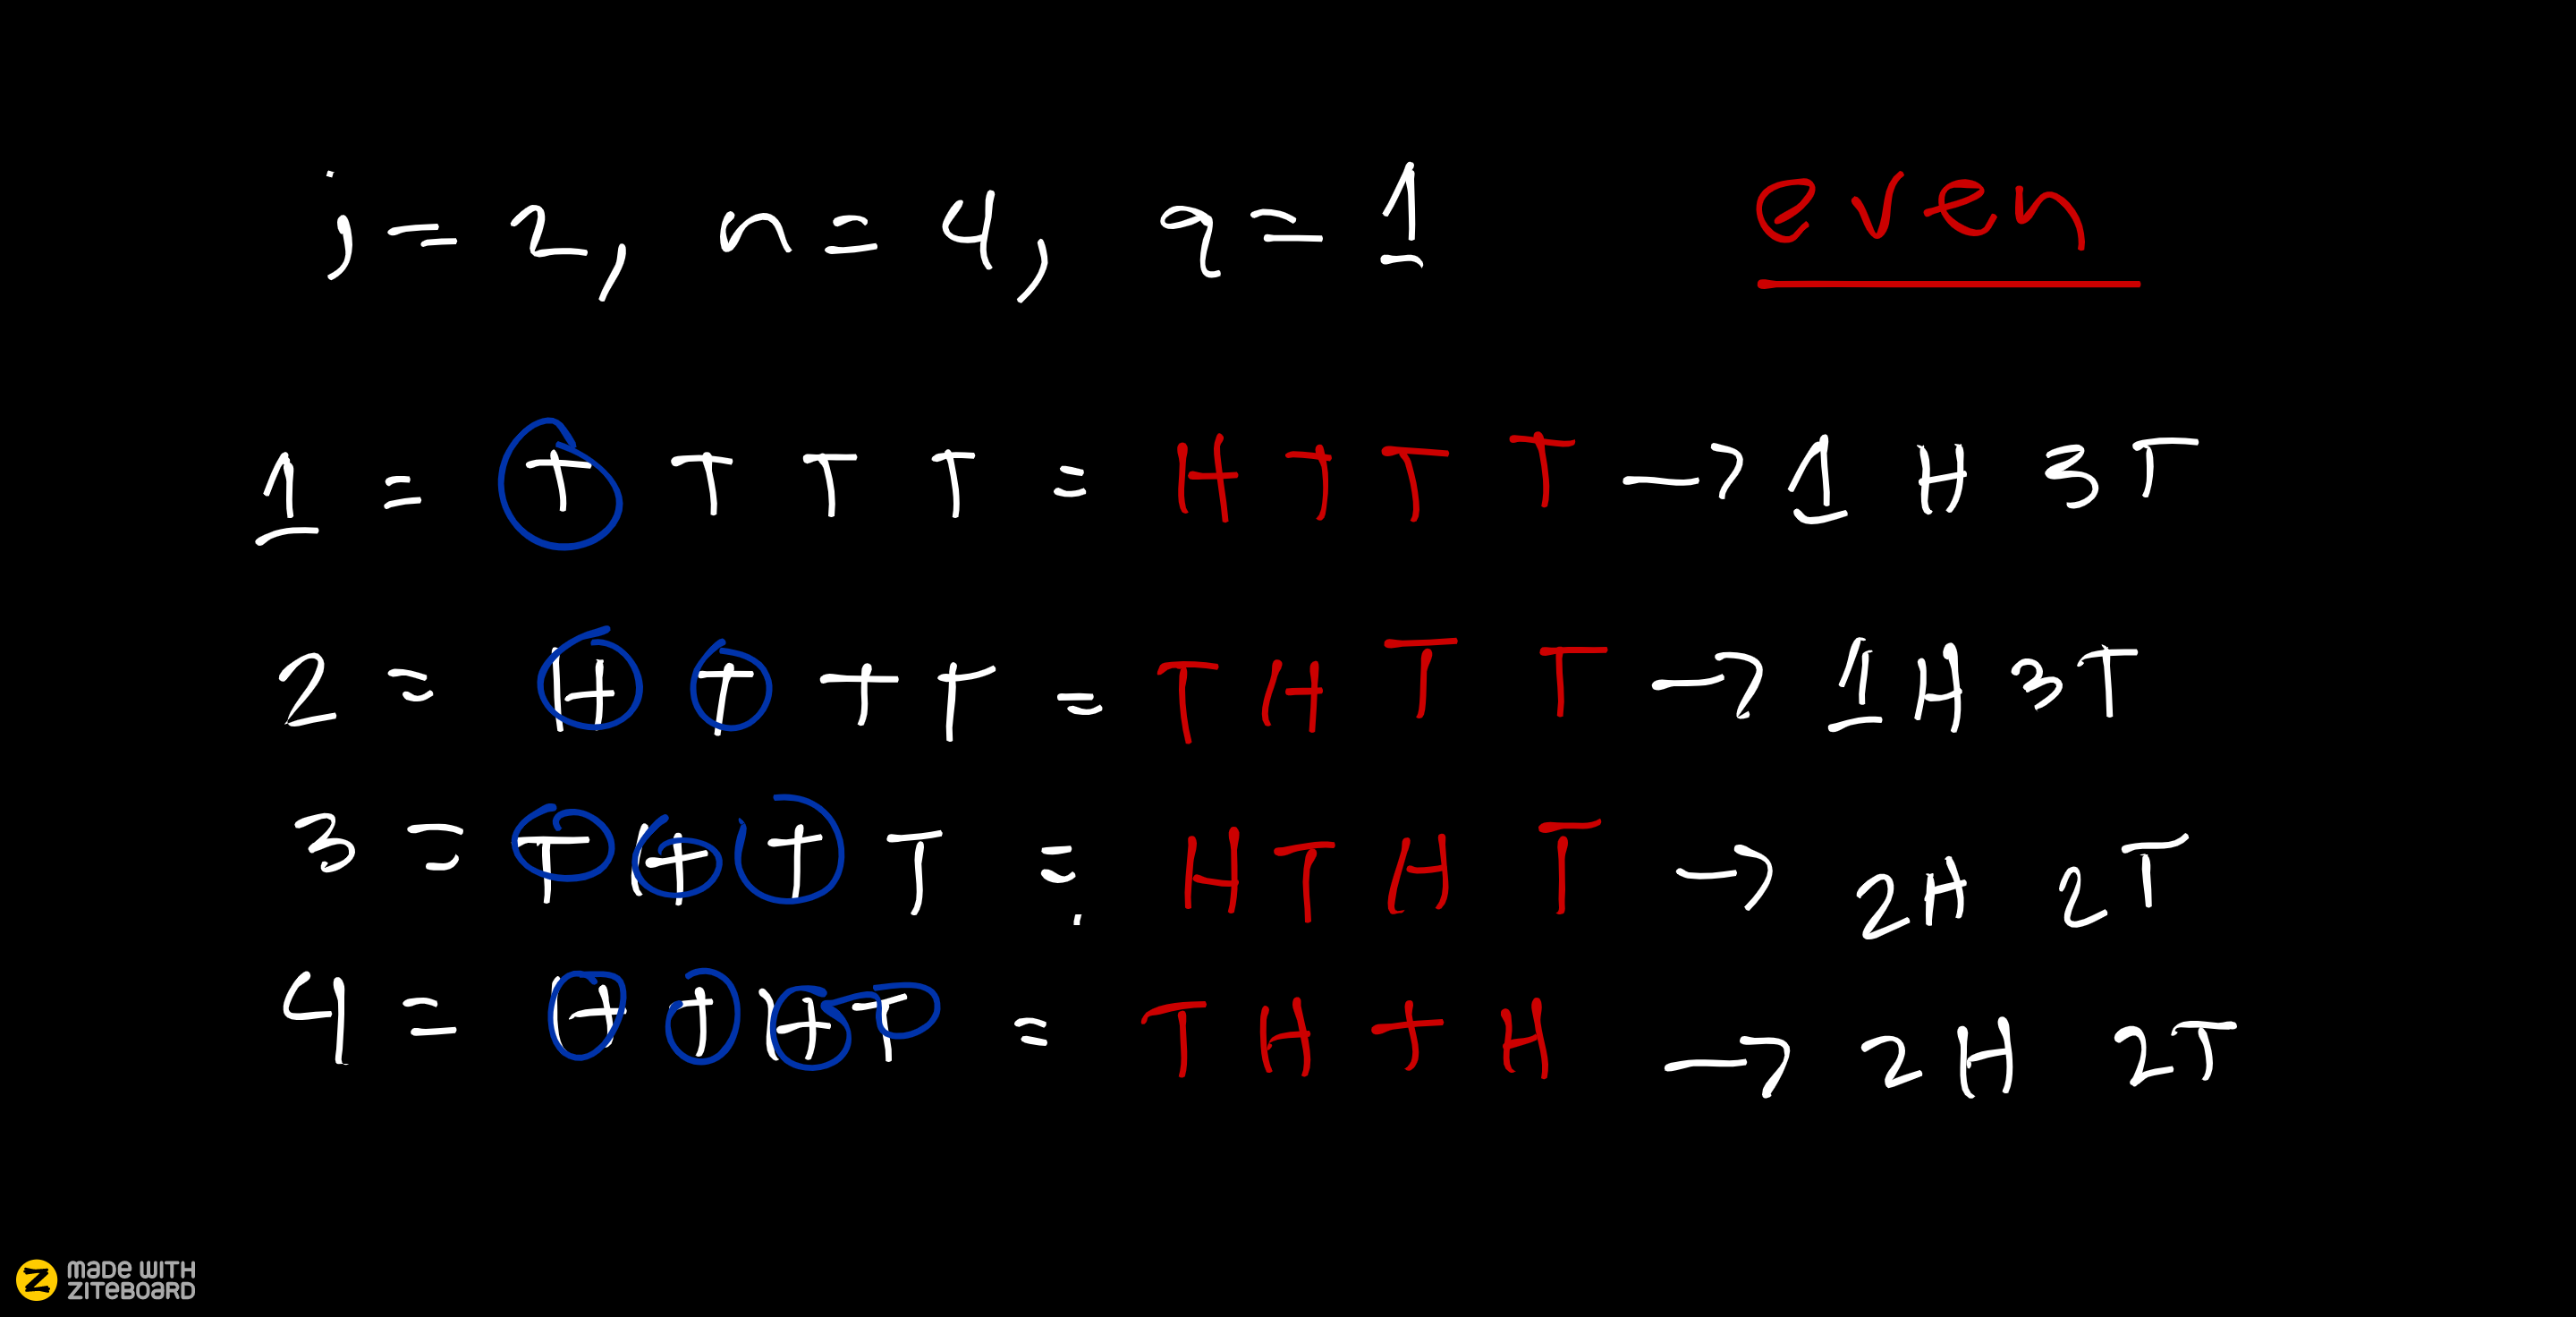 j = 2, n = 4, q = 1 even
1 = T T T T = H T T T → 1 H 3 T
2 = H T T T = T H T T → 1 H 3 T
3 = T H T T = H T H T → 2 H 2 T
4 = H T H T = T H T H → 2 H 2 T
MADE WITH
ZITEBOARD